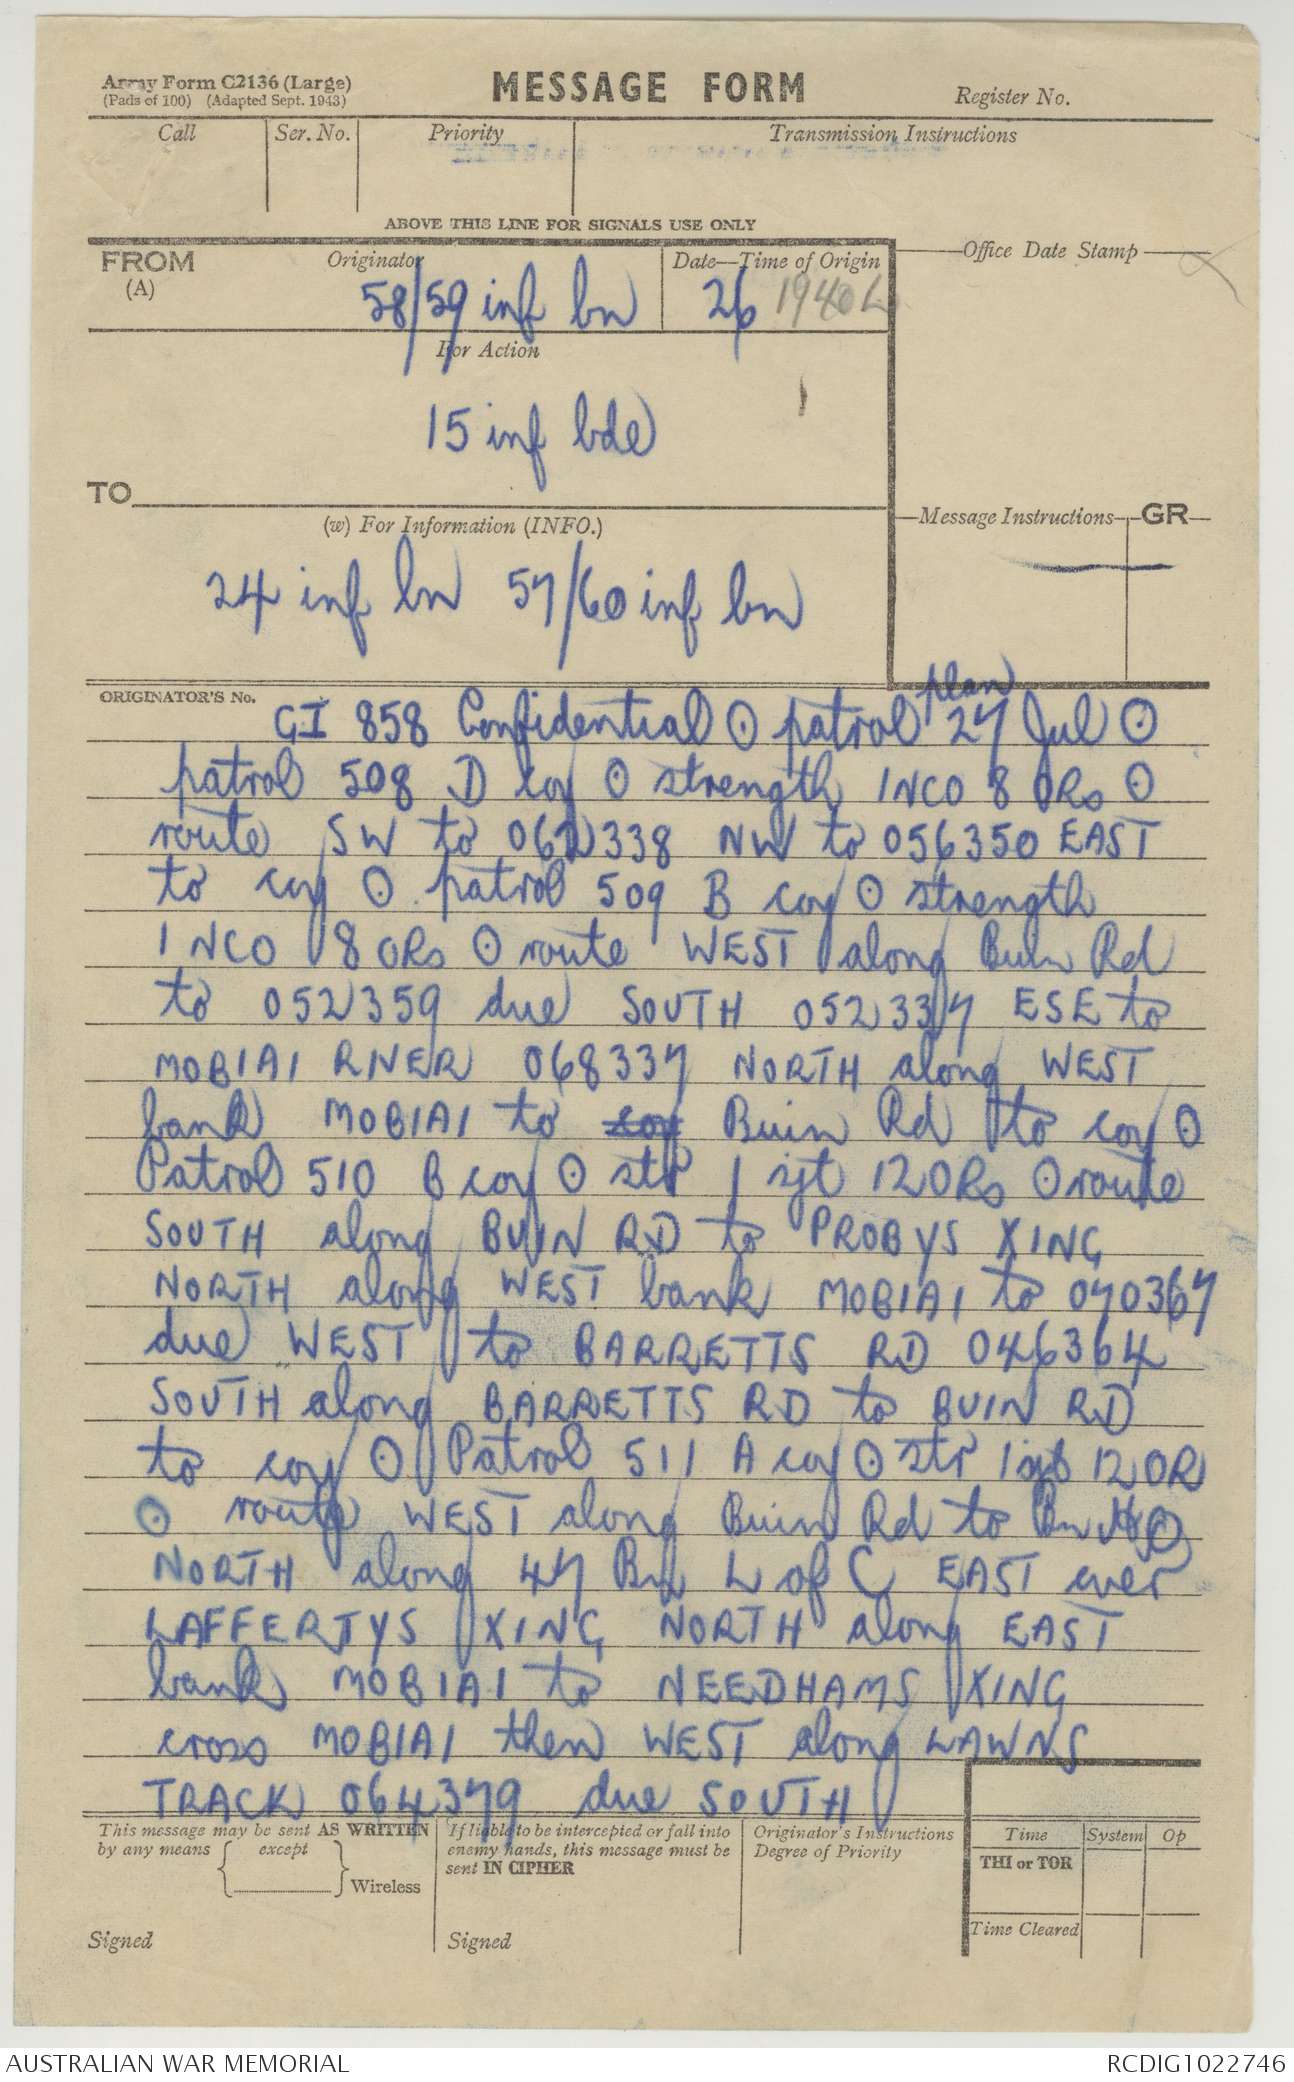 Army Form C2136 (Large)
(Pads of 100) (Adapted Sept. 1943)
MESSAGE FORM
Register No.
Call
Ser. No.
Priority
Transmission Instructions
ABOVE THIS LINE FOR SIGNALS USE ONLY
FROM
(A)
Originator
58/59 inf bn
Date—Time of Origin
26 1940L
Office Date Stamp
For Action
15 inf bde
TO
(w) For Information (INFO.)
24 inf bn 57/60 inf bn
Message Instructions
GR
ORIGINATOR'S No.
plan
GI 858 Confidential ⊙ patrol 27 Jul ⊙
patrol 508 D coy ⊙ strength 1NCO 8 ORs ⊙
route SW to 062338 NW to 056350 EAST
to coy ⊙ patrol 509 B coy ⊙ strength
1 NCO 8 ORs ⊙ route WEST along Buin Rd
to 052359 due SOUTH 052337 ESE to
MOBIAI RIVER 068337 NORTH along WEST
bank MOBIAI to coy Buin Rd to coy ⊙
Patrol 510 B coy ⊙ str 1 sjt 12 ORs ⊙ route
SOUTH along BUIN RD to PROBYS XING
NORTH along WEST bank MOBIAI to 070367
due WEST to BARRETTS RD 046364
SOUTH along BARRETTS RD to BUIN RD
to coy ⊙ Patrol 511 A coy ⊙ str 1 sjt 12 OR
⊙ route WEST along Buin Rd to Bn HQ
NORTH along 47 Bn L of C EAST over
LAFFERTYS XING NORTH along EAST
bank MOBIAI to NEEDHAMS XING
cross MOBIAI then WEST along LAWNS
TRACK 064379 due SOUTH
This message may be sent AS WRITTEN
by any means except
Wireless
Signed
If liable to be intercepted or fall into
enemy hands, this message must be
sent IN CIPHER
Signed
Originator's Instructions
Degree of Priority
Time
System
Op
THI or TOR
Time Cleared
AUSTRALIAN WAR MEMORIAL
RCDIG1022746